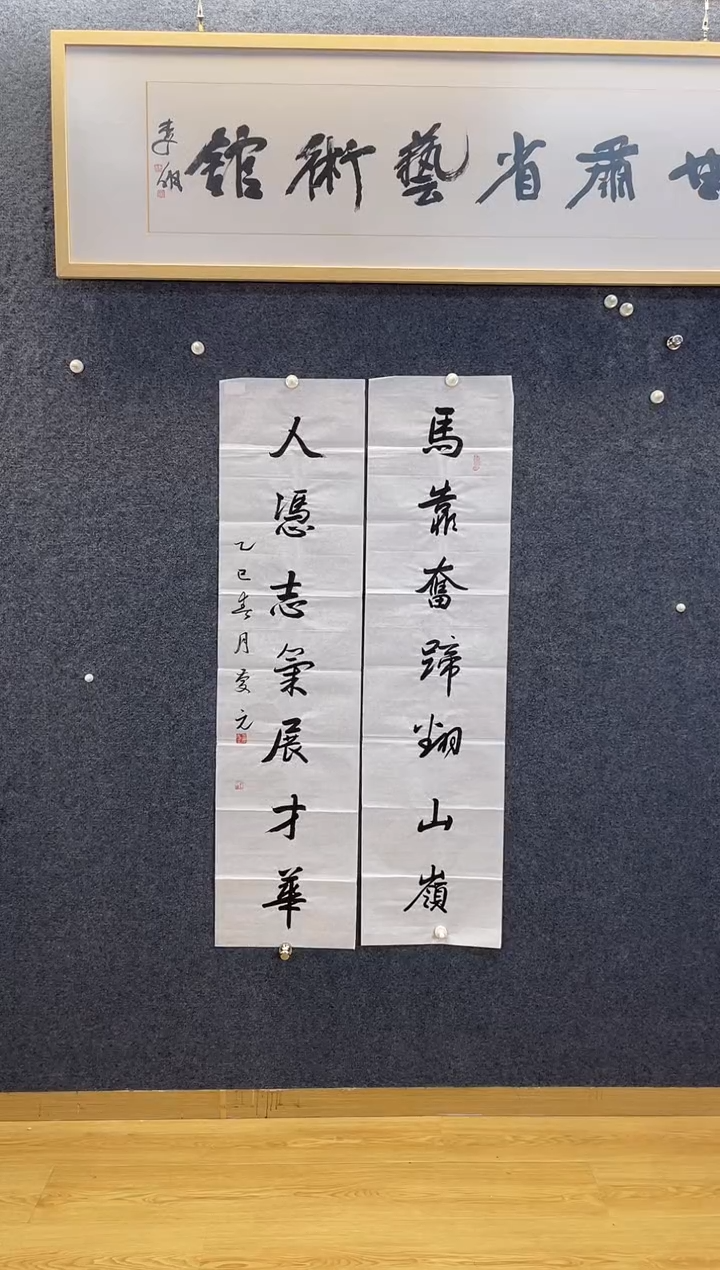 甘肅省藝術館
馬靠奮蹄翻山嶺
人憑志氣展才華
乙巳春月元